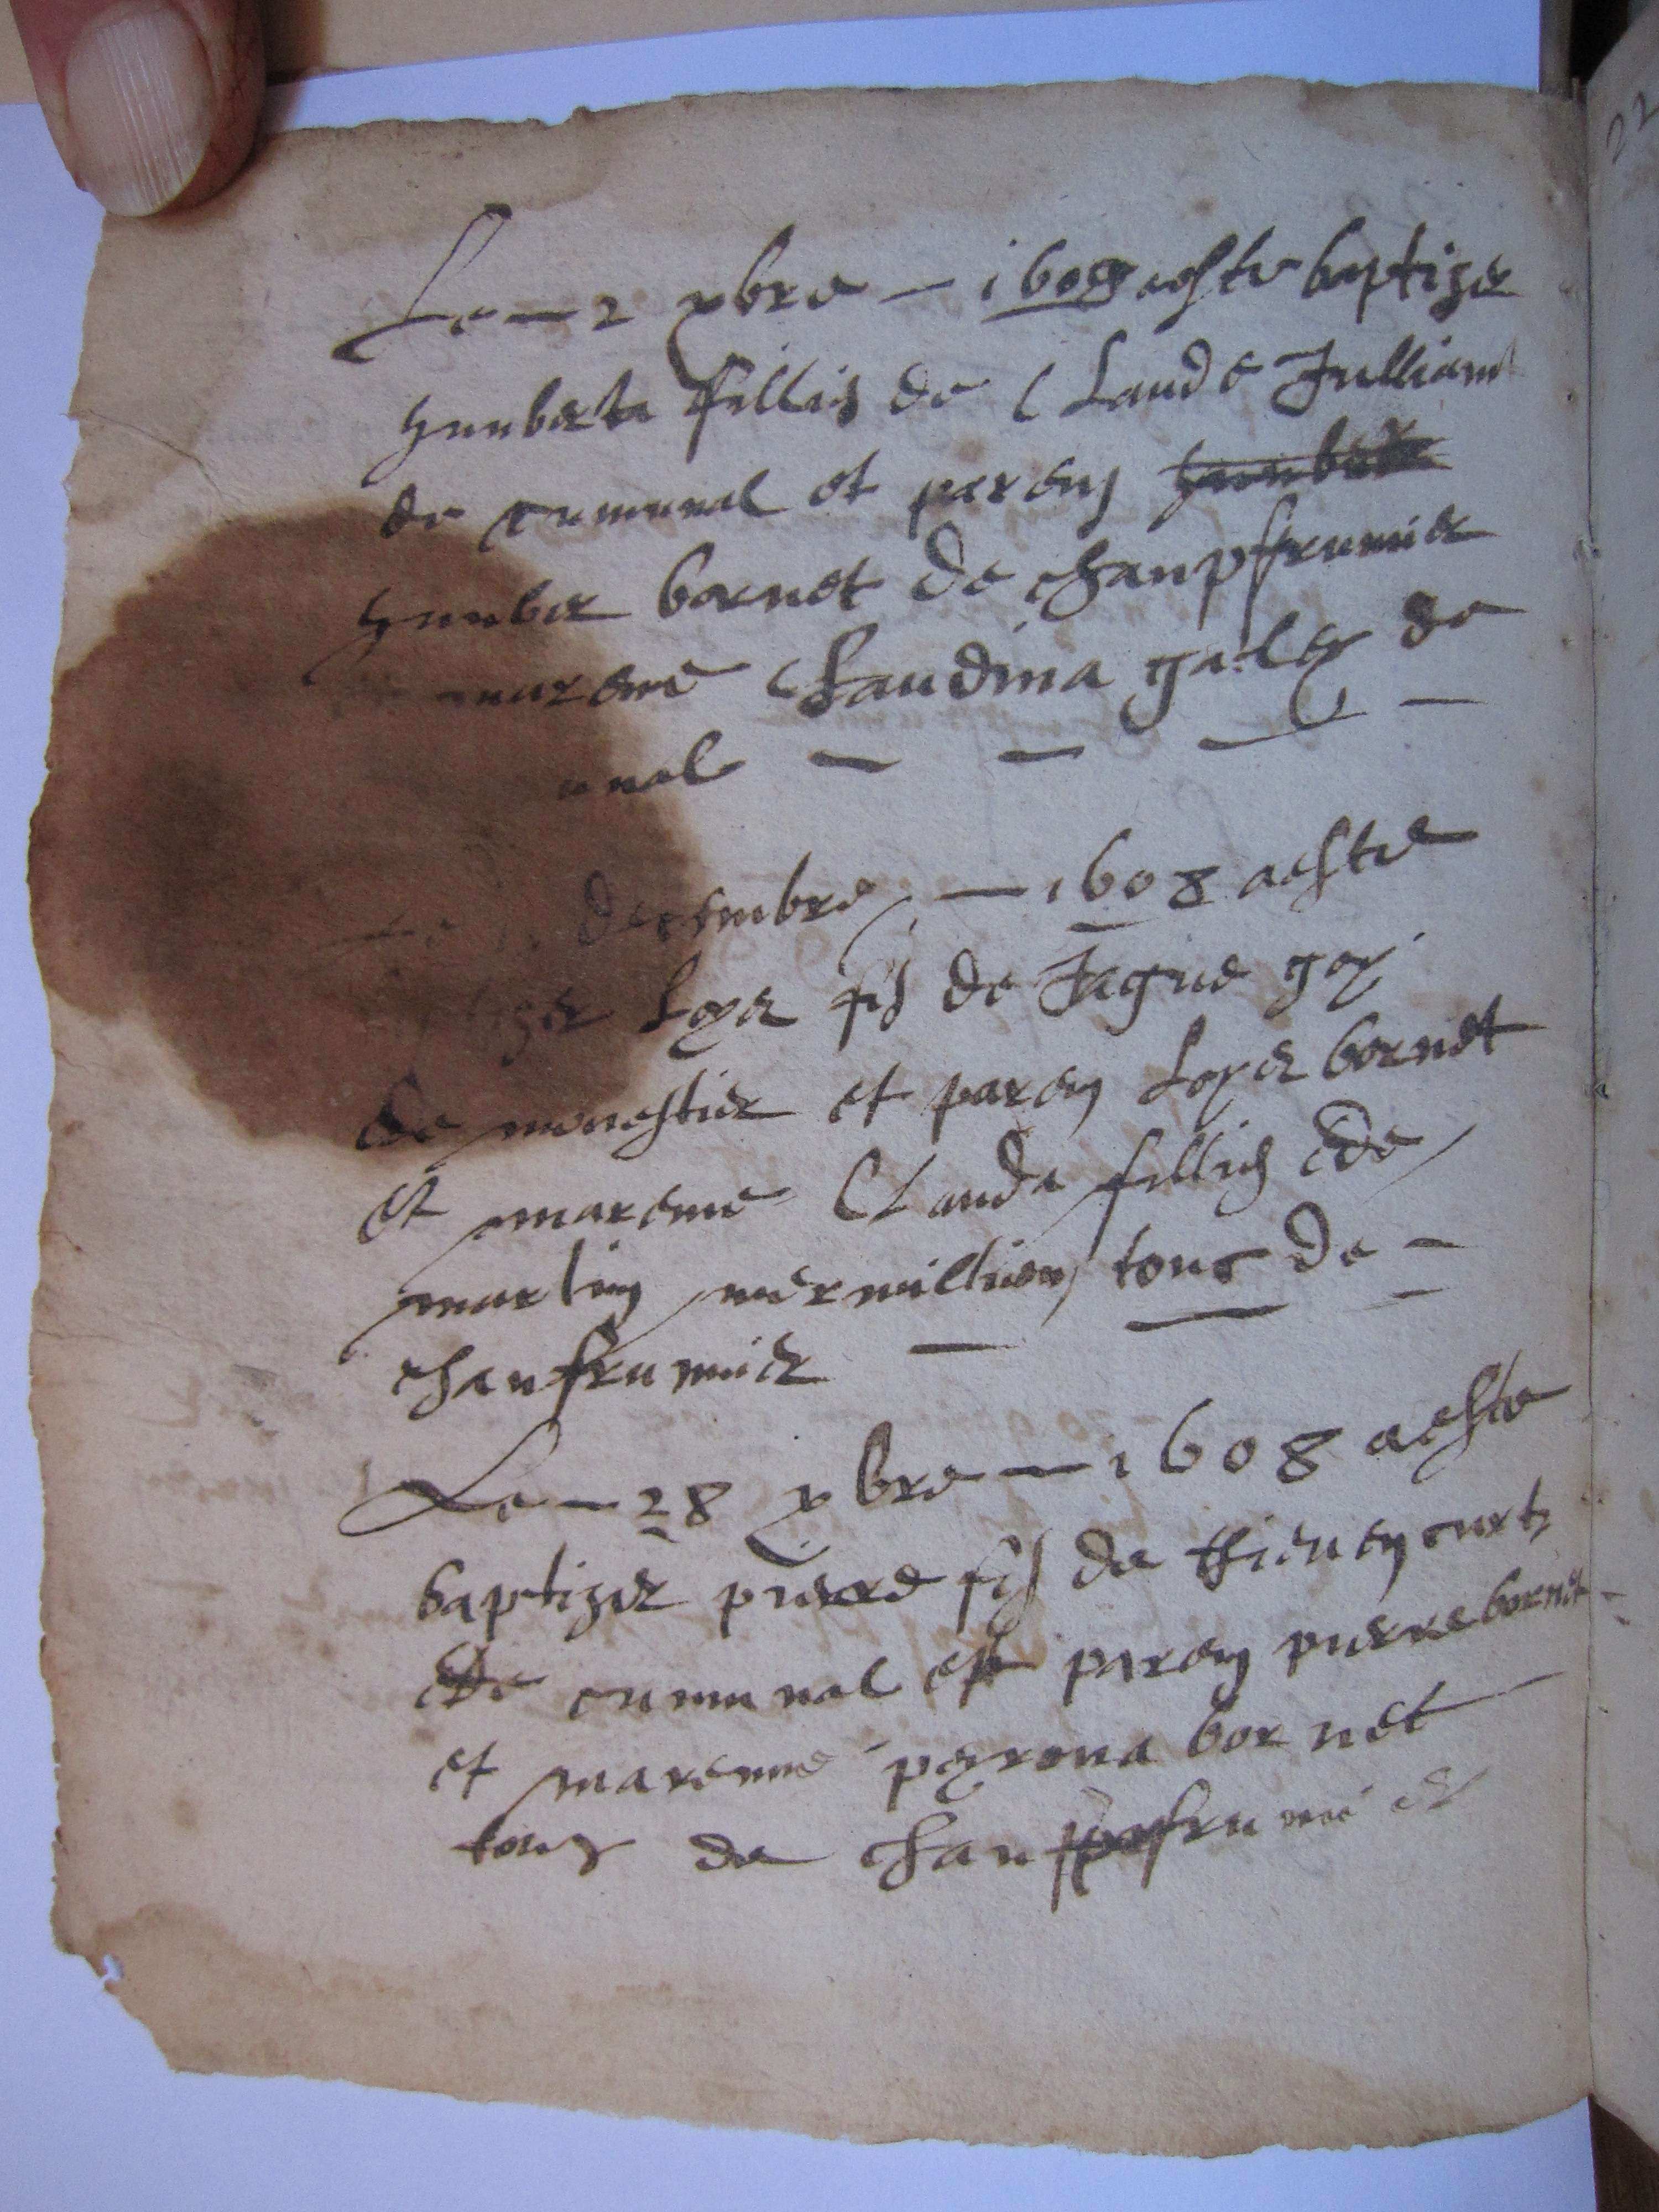 Le - 2 xbre - 1608 aeste baptizer
hunberta fillis de Claude Julliand
de cumunal et paren
hunber bornet de chanpfrumier
marene Claudina gales de
unal - - - -
decembre - 1608 aeste
Loys fis de Jaque goy
de monestier et paren Loys bornet
et marene Clauda fillis de
martin mermillion tous de -
chanfrumier - - -
Le - 28 xbre - 1608 aeste
baptizer pierre fis de thieuen curt
de cumunal et paren pierre bornet -
et marenne peyrona bornet
tous de chanfrumier
22